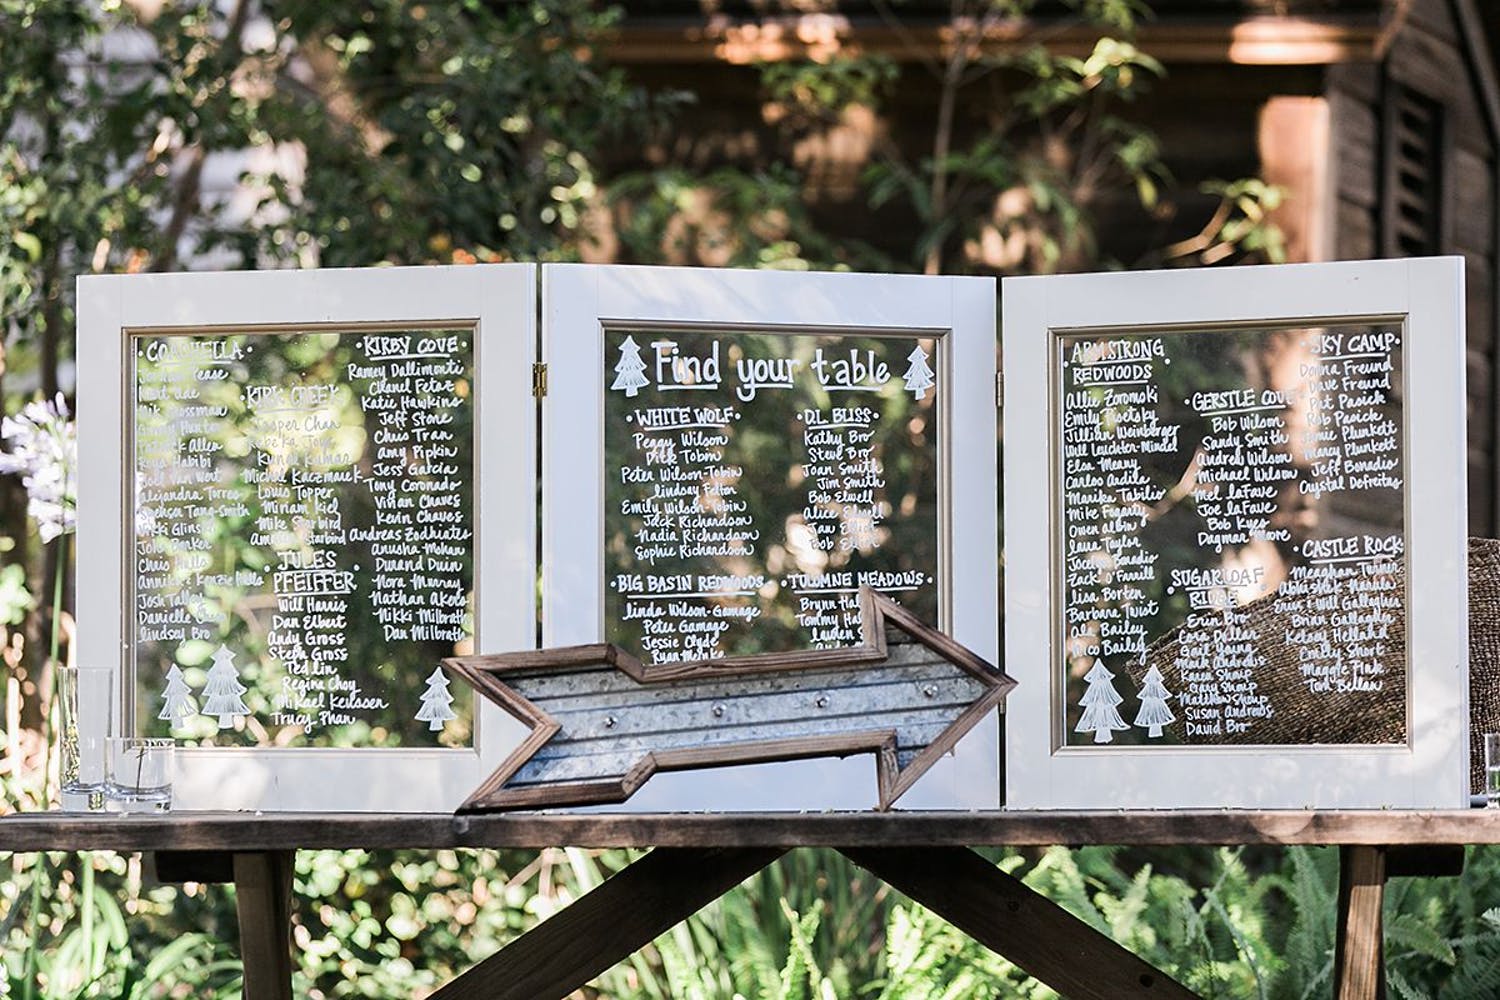 COACHELLA
Pease
Ade
Grossman
Hunter
Allen
Roya Habibi
Joel Van Wert
Alejandra Torres
Tang-Smith
Nikki Glins
John Banker
Chris Hallo
Annika & Kenzie Hallo
Josh Talley
Danielle
Lindsay Bro
KIRK CREEK
Jasper Chan
Kunal Kumar
Michal Kaczmarek
Louis Topper
Miriam Kiel
Mike Starbird
Starbird
JULES
PFEIFFER
Will Harris
Dan Elbert
Andy Gross
Steph Gross
Ted Lin
Regina Choy
Mikael Kenssen
Trucy Phan
KIRBY COVE
Ramey Dallimonti
Chanel Fetaz
Katie Hawkins
Jeff Stone
Chris Tran
Amy Pipkin
Jess Garcia
Tony Coronado
Vivian Chaves
Kevin Chaves
Andreas Zodhiates
Anusha Mohan
Durand Duin
Nora Murray
Nathan Akola
Nikki Milbrath
Dan Milbrath
Find your table
WHITE WOLF
Peggy Wilson
Dick Tobin
Peter Wilson-Tobin
Lindsay Felton
Emily Wilson-Tobin
Jack Richardson
Nadia Richardson
Sophie Richardson
BIG BASIN REDWOODS
Linda Wilson-Gamage
Peter Gamage
Jessie Clyde
Ryan Menke
D.L. BLISS
Kathy Bro
Steve Bro
Joan Smith
Jim Smith
Bob Elwell
Alice Elwell
Jan Elliot
Bob Elliot
TULOMNE MEADOWS
Brynn
Tommy
Lauren
ARMSTRONG
REDWOODS
Allie Zoromski
Emily Pisetsky
Jillian Weinberger
Will Leuchter-Mindel
Elsa Meany
Carlos Ardila
Marika Tabilio
Mike Fogarty
Owen Albin
Laura Taylor
Jocelyn Bonadio
Zack O'Farrill
Lisa Borten
Barbara Twist
Ale Bailey
Nico Bailey
GERSTLE COVE
Bob Wilson
Sandy Smith
Andrea Wilson
Michael Wilson
Mel LaFave
Joe LaFave
Bob Kyes
Dagmar Moore
SUGARLOAF
RIDGE
Erin Bro
Cora Dollar
Gail Young
Mark Andrews
Karen Shoup
Gary Shoup
Matthew Shoup
Susan Andrews
David Bro
SKY CAMP
Donna Freund
Dave Freund
Pat Pasick
Rob Pasick
Jamie Plunkett
Marcy Plunkett
Jeff Bonadio
Crystal DeFreitas
CASTLE ROCK
Meaghan Turner
Abhishek Narula
Erins & Will Gallagher
Brian Gallagher
Kelsey Helland
Emily Short
Maggie Fink
Tom Bellan